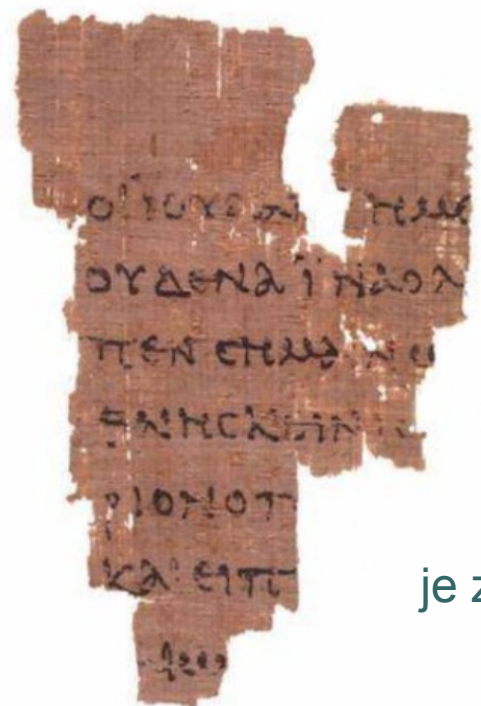 ΟΙ ΪΟΥΔΑΙ ΗΜΕ
ΟΥΔΕΝΑ ΪΝΑ ΟΛ
ΠΕΝ ΣΗΜΑΙΝΩ
ΘΝΗΣΚΕΙΝ ΙΣ
ΡΙΟΝ Ο Π
ΚΑΙ ΕΙΠ
je z